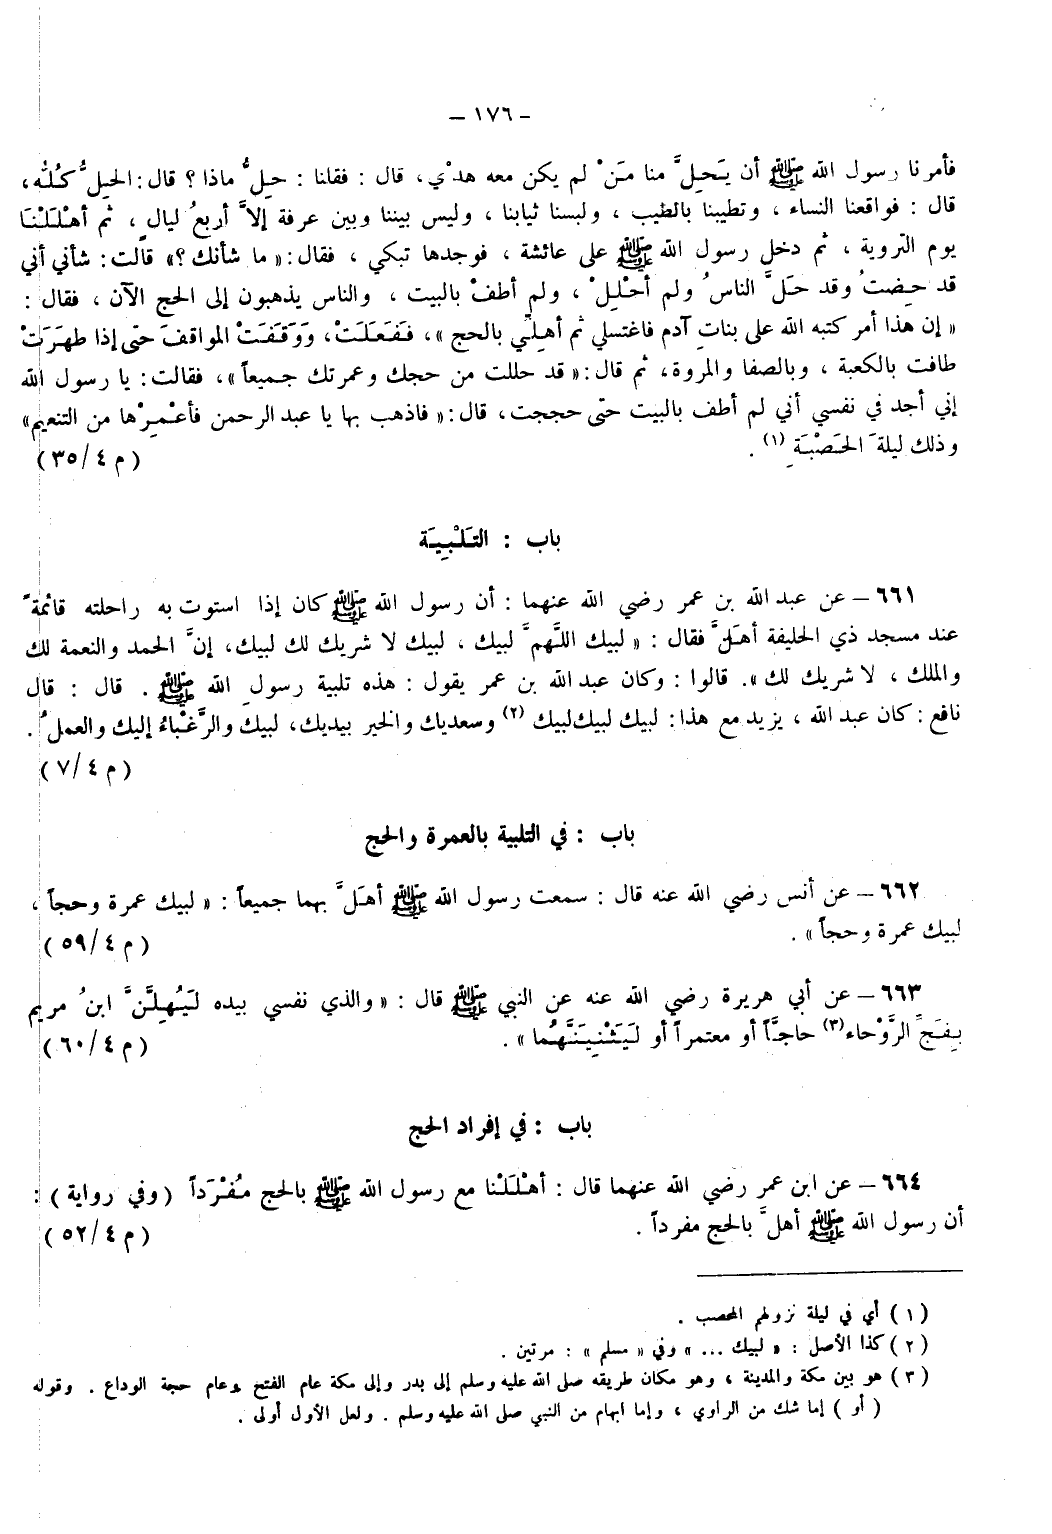 – ١٧٦ –
فأمرنا رسول الله ﷺ أن يَحِلَّ منا مَنْ لم يكن معه هدْي، قال : فقلنا : حِلُّ ماذا ؟ قال : الحِلُّ كُلُّه،
قال : فواقعنا النساء ، وتطيبنا بالطيب ، ولبسنا ثيابنا ، وليس بيننا وبين عرفة إلاَّ أربعُ ليالٍ ، ثم أهْلَلْنَا
يوم التروية ، ثم دخل رسول الله ﷺ على عائشة ، فوجدها تبكي ، فقال : « ما شأنك ؟» قالت : شأني أني
قد حِضتُ وقد حَلَّ الناسُ ولم أحْلِلْ ، ولم أطفْ بالبيت ، والناس يذهبون إلى الحج الآن ، فقال :
« إن هذا أمر كتبه الله على بناتِ آدم فاغتسلي ثم أهِلِّي بالحج »، فَفَعَلَتْ، وَوَقَفَتْ المواقفَ حتى إذا طهَرَتْ
طافت بالكعبة ، وبالصفا والمروة، ثم قال : « قد حللت من حجك وعمرتك جميعاً »، فقالت : يا رسول الله
إني أجد في نفسي أني لم أطف بالبيت حتى حججت، قال : « فاذهب بها يا عبد الرحمن فأعْمِرْها من التنعيم»
وذلك ليلةَ الحَصْبَةِ (١) .
( م ٤/ ٣٥ )
باب : التَلْبِيَة
٦٦١ – عن عبد الله بن عمر رضي الله عنهما : أن رسول الله ﷺ كان إذا استوت به راحلته قائمةً
عند مسجد ذي الحليفة أهَلَّ فقال : « لبيك اللَّهمَّ لبيك ، لبيك لا شريك لك لبيك، إنَّ الحمد والنعمة لك
والملك ، لا شريك لك ». قالوا : وكان عبد الله بن عمر يقول : هذه تلبية رسولِ الله ﷺ . قال : قال
نافع : كان عبد الله ، يزيد مع هذا : لبيك لبيك لبيك (٢) وسعديك والخير بيديك، لبيك والرَّغْباءُ إليك والعملُ .
( م ٤/ ٧ )
باب : في التلبية بالعمرة والحج
٦٦٢ – عن أنس رضي الله عنه قال : سمعت رسول الله ﷺ أهَلَّ بهما جميعاً : « لبيك عمرة وحجاً ،
لبيك عمرة وحجاً » .
( م ٤/ ٥٩ )
٦٦٣ – عن أبي هريرة رضي الله عنه عن النبي ﷺ قال : « والذي نفسي بيده لَيُهِلَّنَّ ابنُ مريم
بِفَجِّ الرَّوْحاء(٣) حاجّاً أو معتمراً أو لَيَثْنِيَنَّهُما » .
( م ٤/ ٦٠ )
باب : في إفراد الحج
٦٦٤ – عن ابن عمر رضي الله عنهما قال : أهْلَلْنا مع رسول الله ﷺ بالحج مُفْرَداً ( وفي رواية ) :
أن رسول الله ﷺ أهلَّ بالحج مفرداً .
( م ٤/ ٥٢ )
( ١ ) أي في ليلة نزولهم المحصب .
( ٢ ) كذا الأصل : « لبيك ... » وفي « مسلم » : مرتين .
( ٣ ) هو بين مكة والمدينة ، وهو مكان طريقه صلى الله عليه وسلم إلى بدر وإلى مكة عام الفتح وعام حجة الوداع . وقوله
( أو ) إما شك من الراوي ، وإما ابهام من النبي صلى الله عليه وسلم . ولعل الأول أولى .